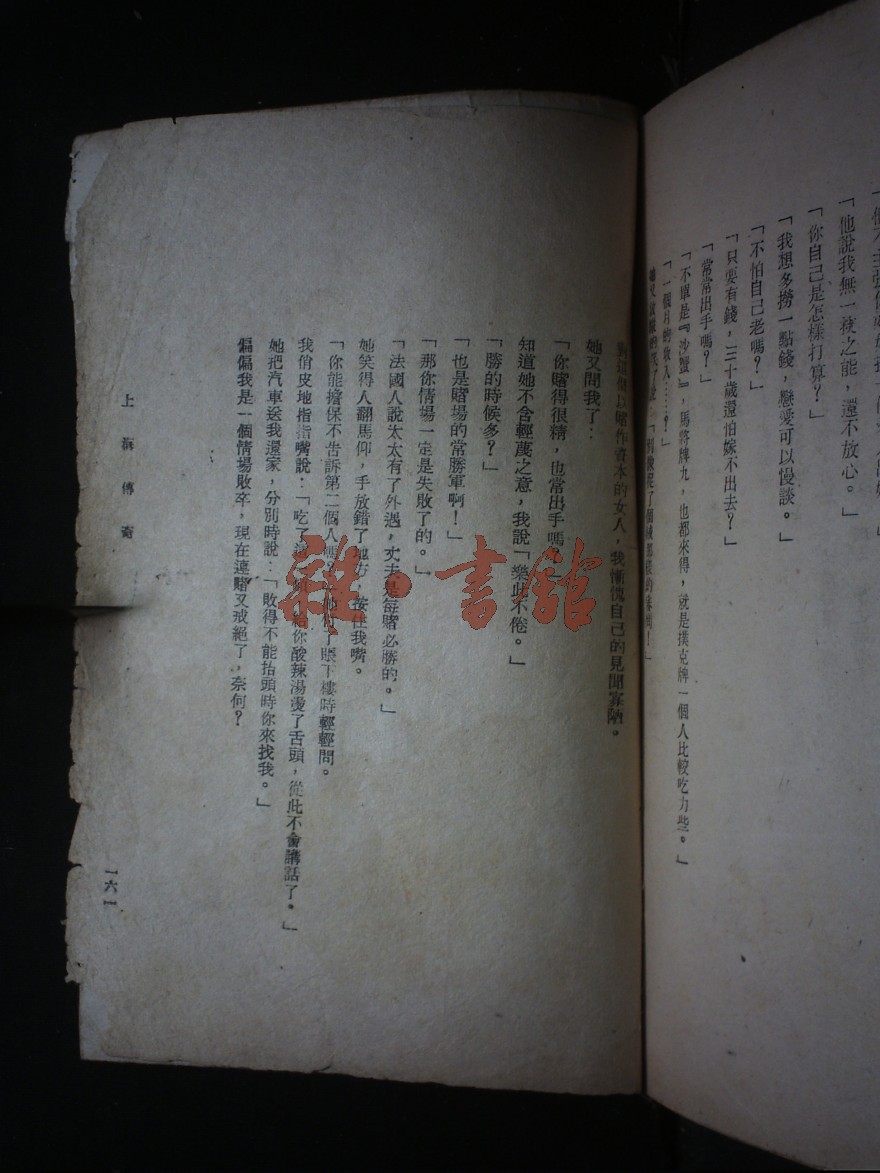 「他說我無一技之能，還不放心。」
「你自己是怎樣打算？」
「我想多撈一點錢，戀愛可以慢談。」
「不怕自己老嗎？」
「只要有錢，三十歲還怕嫁不出去？」
「常常出手嗎？」
「不單是『沙蟹』，馬將牌九，也都來得，就是撲克牌一個人比較吃力些。」
「一個月的收入……？」
對這個以賭作資本的女人，我慚愧自己的見聞寡陋。
她又問我了：
「你賭得很精，也常出手嗎？」
知道她不含輕蔑之意，我說「樂此不倦。」
「勝的時候多？」
「也是賭場的常勝軍啊！」
「那你情場一定是失敗了的。」
「法國人說太太有了外遇，丈夫是每賭必勝的。」
她笑得人翻馬仰，手放錯了地方，按住我嘴。
「你能擔保不告訴第二個人嗎？」她付了賬下樓時輕輕問。
我俏皮地指指嘴說：「吃了 給你酸辣湯燙了舌頭，從此不會講話了。」
她把汽車送我還家，分別時說：「敗得不能抬頭時你來找我。」
偏偏我是一個情場敗卒，現在連賭又戒絕了，奈何？
上海傳奇
一六一
雜·書館